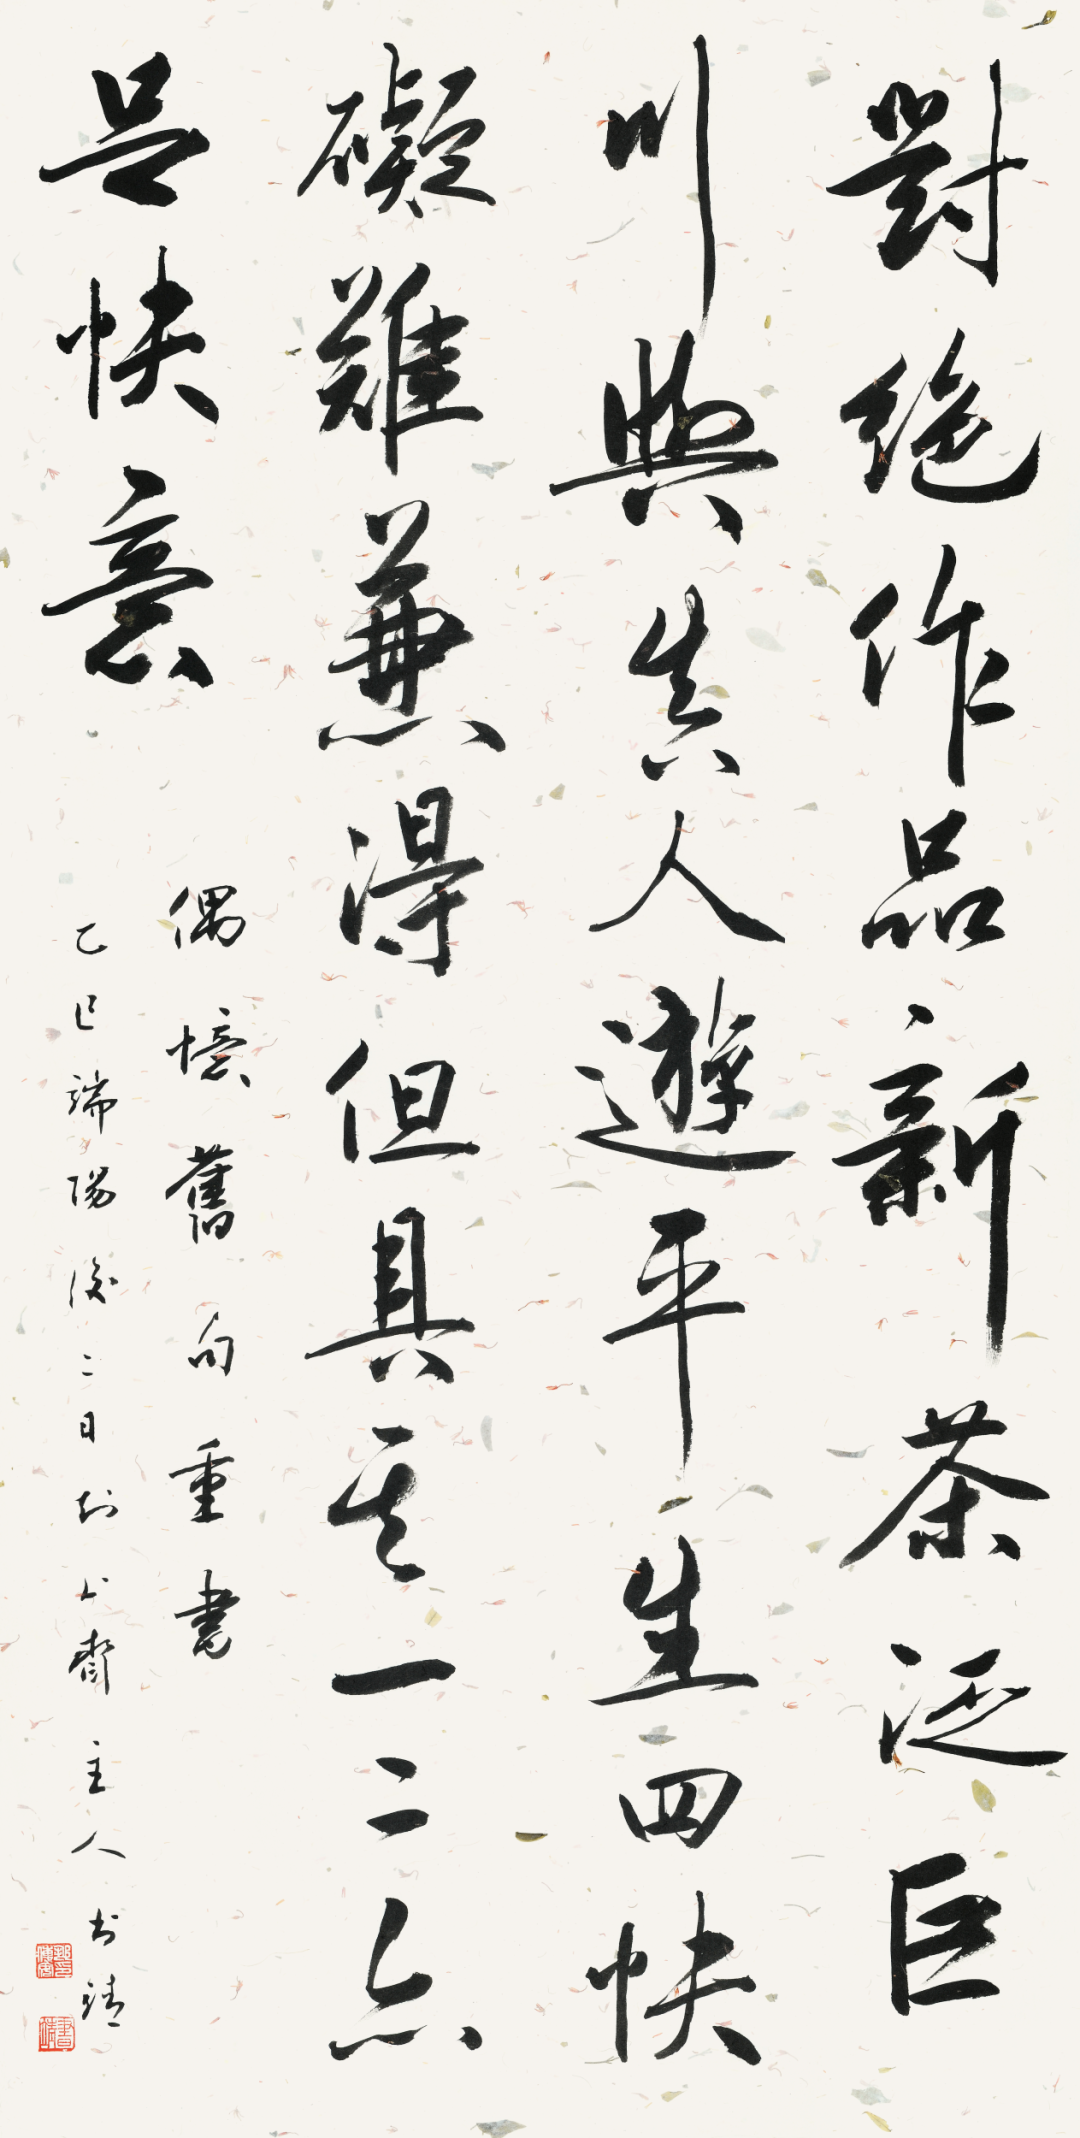 對絕作品新茶泛巨
川與真人遊平生四快
礙難兼得但具其一二亦
足快意
偶憶舊句重書
乙巳端陽後二日於
齋主人書靖